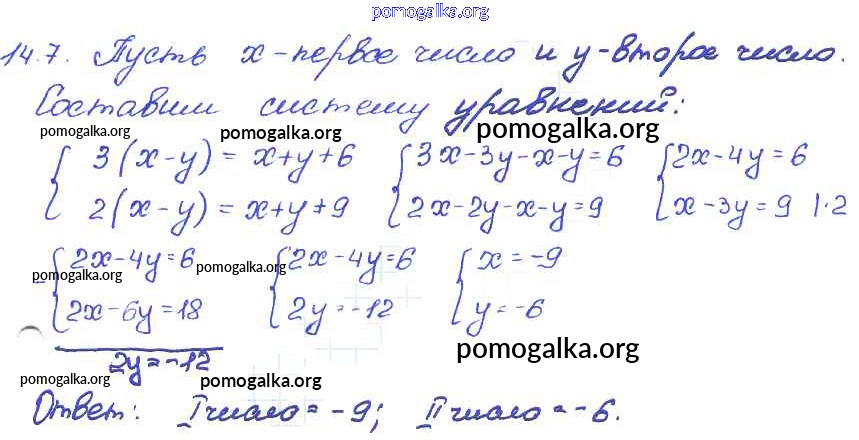 pomogalka.org
14.7. Пусть x - первое число и y - второе число.
Составим систему уравнений:
pomogalka.org pomogalka.org pomogalka.org
{ 3(x-y) = x+y+6 { 3x-3y-x-y=6 { 2x-4y=6
{ 2(x-y) = x+y+9 { 2x-2y-x-y=9 { x-3y=9 |·2
- { 2x-4y=6 { 2x-4y=6 { x=-9
pomogalka.org pomogalka.org
{ 2x-6y=18 { 2y=-12 { y=-6
2y=-12
pomogalka.org
pomogalka.org pomogalka.org
Ответ: I число = -9; II число = -6.